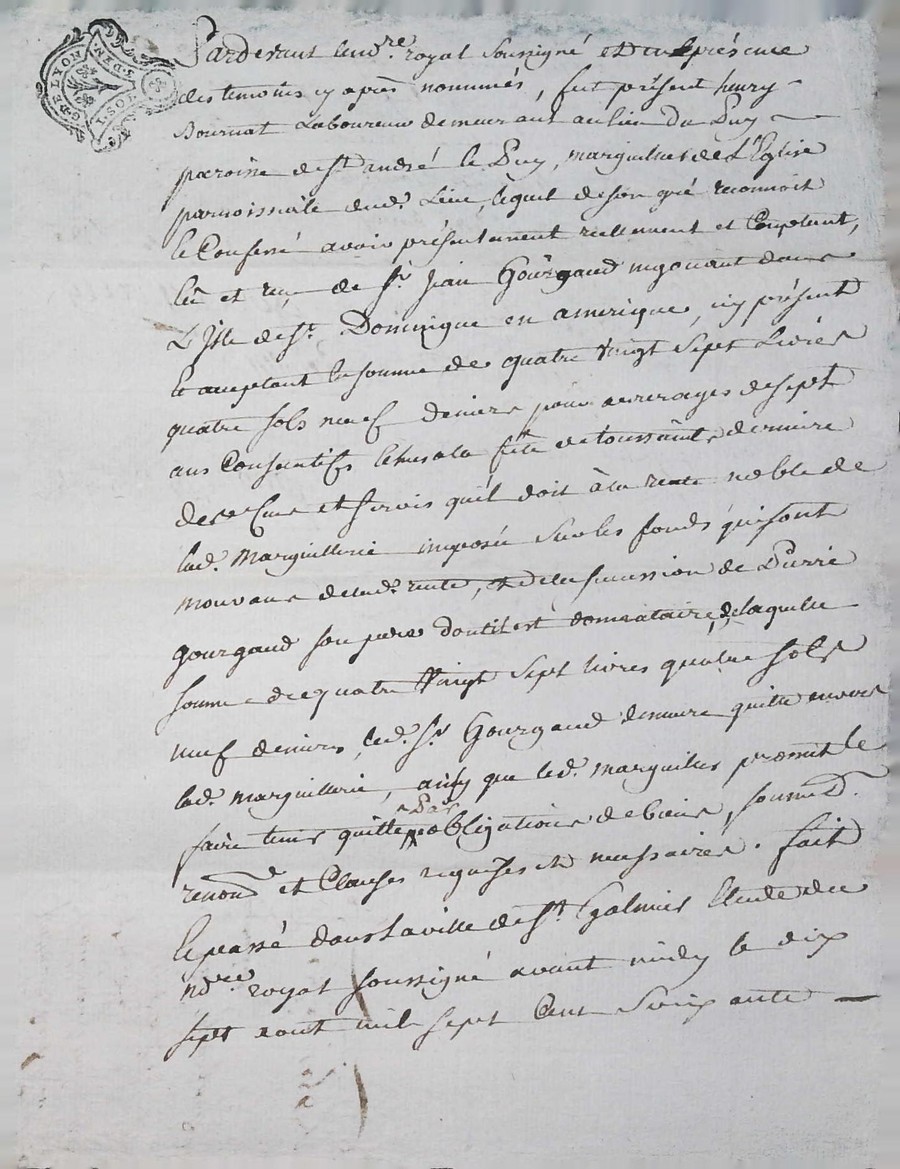 G. DE LYON
Pardevant le ndre royal soussigné et en la présence
des temoins cy après nommés, fut présent henry
Bournat Laboureur demeurant au lieu du Puy
paroisse de St. andré le Puy, marguillier de L'Eglise
parroissialle dud. Lieu, lequel de son gré reconnoit
et Confessé avoir présentement reellement et Comptant,
Eü et reçu de Sr. Jean Gourgaud negotiant dans
L'Isle de St. Domingue en amerique, icy présent
et aceptant la somme de quatre Vingt Sept Livres
quatre sols neuf deniers pour arrerages de sept
ans Consecutifs échus à la fête de toussaints derniere
de Cens et servis qu'il doit à la rente noble de
lad. marguillerie imposée sur les fonds qui sont
mouvans de lad. rente, et de la succession de Pierre
gourgaud son pere dont il est donnataire, de laquelle
somme de quatre Vingt Sept livres quatre sols
neuf deniers, led. Sr. Gourgaud demeure quitte envers
lad. marguillerie, ainsy que led. marguillier promet le
faire tenir quitte Par obligations de biens, soumed.
renond. et Clauses requises et necessaires. fait
et passé dans la ville de St Galmier Etude du
ndre royal soussigné avant midy le dix
sept aout mil sept Cent Soixante